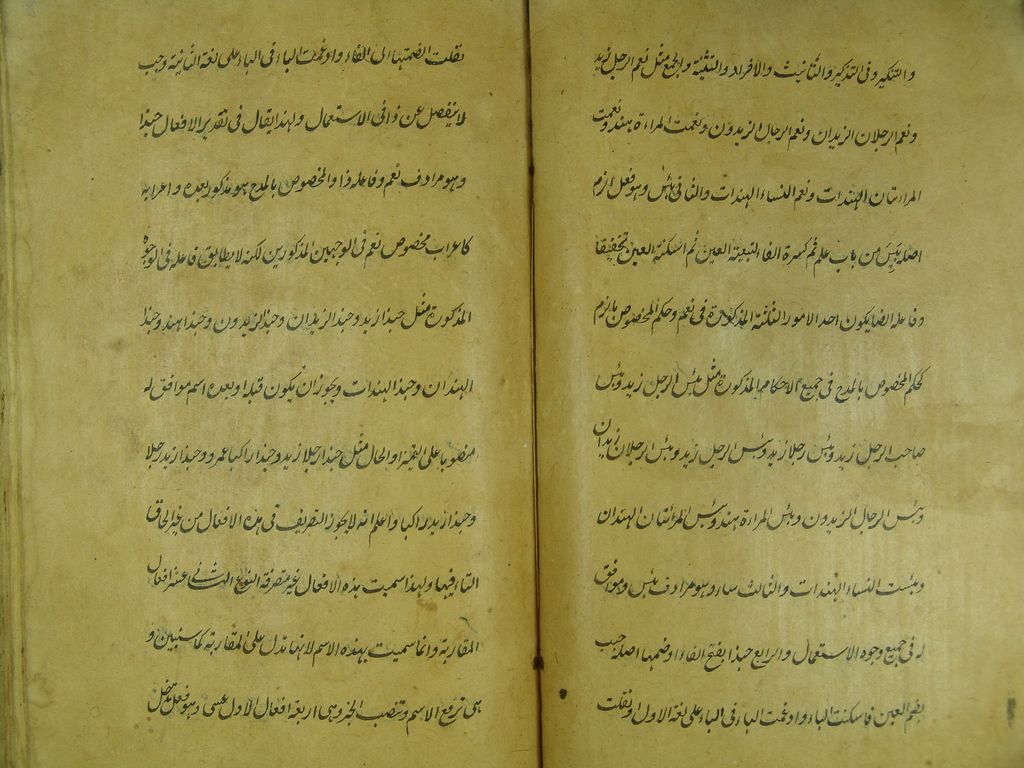 والتنكير وفى التذكير والتانيث والافراد والتثنية والجمع مثل نعم الرجل زيد
ونعم الرجلان الزيدان ونعم الرجال الزيدون ونعمت المراءة هند ونعمت
المراءتان الهندات ونعم النساء الهندات والثانى بئس وهو فعل ازم
اصله بئس من باب علم ثم كسرة الفاء لتبعية العين ثم اسكنة العين تخفيفا
وفاعله ايضا يكون احد الامور الثلثة المذكورة فى نعم وحكم المخصوص بالزم
كحكم المخصوص بالمدح فى جميع الاحكام المذكورة مثل بئس الرجل زيد وبئس
صاحب الرجل زيد وبئس رجلا زيد وبئس الرجل زيد وبئس الرجلان زيدان
وبئس الرجال الزيدون وبئس المراءة هند وبئس المراءتان الهندان
وبئست النساء الهندات والثالث ساء وهو مرادف بئس وموافق
له فى جميع وجوه الاستعمال والرابع حبذا بفتح الفاء او ضمها اصله حبب
بضم العين فاسكنت الباء وادغمت الباء فى الباء على لغة الاول او نقلت
نقلت الضمتها الى الفاء وادغمت الباء فى الباء على لغة الثانية وحب
لا ينفصل عن ذا فى الاستعمال ولهذا يقال فى تقدير الافعال حبذا
وهو مرادف نعم وفاعله ذا والمخصوص بالمدح هو مذكور بعده واعرابه
كاعراب مخصوص نعم فى الوجهين المذكورين لكنه لا يطابق فاعله فى الوجوه
المذكورة مثل حبذا زيد وحبذا الزيدان وحبذا الزيدون وحبذا هند وحبذا
الهندان وحبذا الهندات ويجوز ان يكون قبله او بعده اسم موافق له
منصوبا على التميز او الحال مثل حبذا رجلا زيد وحبذا راكبا عمرو وحبذا زيد رجلا
وحبذا زيد راكبا واعلم انه لا يجوز التصريف فى هذه الافعال من غير الحاق
التاء فيها ولهذا سميت هذه الافعال غير متصرفة النوع عشر افعال
المقاربة وانما سميت بهذه الاسم لانها تدل على المقاربة كما سنبين و
هى ترفع الاسم وتنصب الخبر وهى اربعة افعال الاول عسى وهو فعل يدخل